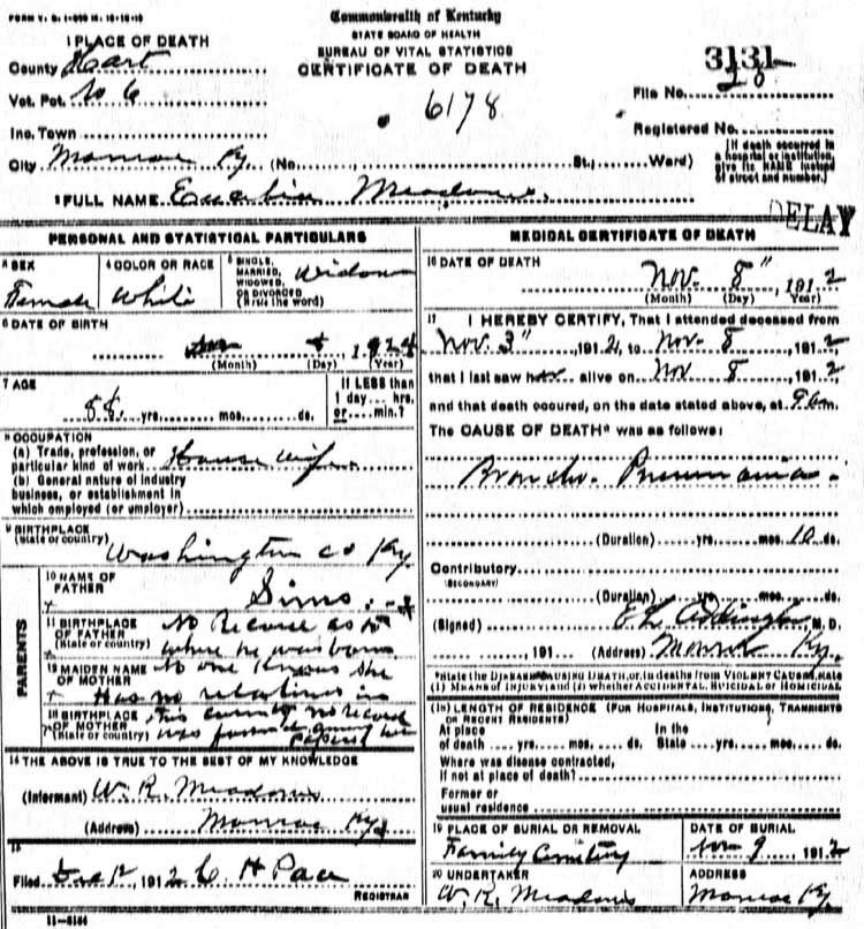 FORM V. S. 1-
Commonwealth of Kentucky
STATE BOARD OF HEALTH
BUREAU OF VITAL STATISTICS
CERTIFICATE OF DEATH
1 PLACE OF DEATH
County Hart
Vot. Pct. No 6
Inc. Town
City Monroe Ky. (No. St.; Ward)
3131
20
File No.
6178
Registered No.
(If death occurred in
a hospital or institution,
give its NAME instead
of street and number.)
2 FULL NAME Meadows
DELAY
PERSONAL AND STATISTICAL PARTICULARS
3 SEX
Female
4 COLOR OR RACE
White
5 SINGLE,
MARRIED,
WIDOWED,
OR DIVORCED
(Write the word)
Widow
6 DATE OF BIRTH
8, 1824
(Month) (Day) (Year)
7 AGE
88 yrs. mos. ds.
If LESS than
1 day ... hrs.
or ... min.?
8 OCCUPATION
(a) Trade, profession, or
particular kind of work House wife
(b) General nature of industry
business, or establishment in
which employed (or employer)
9 BIRTHPLACE
(State or country) Washington co Ky.
PARENTS
10 NAME OF
FATHER Sims
11 BIRTHPLACE
OF FATHER
(State or country)
No Recorde as to
where he was born
12 MAIDEN NAME
OF MOTHER
No one Knows she
Has no relatives in
13 BIRTHPLACE
OF MOTHER
(State or country)
this county no record
was found among her
papers
14 THE ABOVE IS TRUE TO THE BEST OF MY KNOWLEDGE
(Informant) W. R. Meadows
(Address) Monroe Ky
15
Filed Dec 12, 1912 C. H Pace
REGISTRAR
11-5184
MEDICAL CERTIFICATE OF DEATH
16 DATE OF DEATH
Nov. 8", 1912
(Month) (Day) Year)
17 I HEREBY CERTIFY, That I attended deceased from
Nov. 3", 1912, to Nov. 8, 1912
that I last saw her alive on Nov 8, 1912
and that death occured, on the date stated above, at 9 am.
The CAUSE OF DEATH* was as follows:
Broncho. Pneumonia.
(Duration) yrs. mos. 10 ds.
Contributory
(SECONDARY)
(Duration) yrs. mos. ds.
(Signed) M. D.
, 191 (Address) Monroe Ky.
*State the DISEASE CAUSING DEATH, or, in deaths from VIOLENT CAUSES, state
(1) MEANS OF INJURY; and (2) whether ACCIDENTAL, SUICIDAL or HOMICIDAL
(18) LENGTH OF RESIDENCE (FOR HOSPITALS, INSTITUTIONS, TRANSIENTS
OR RECENT RESIDENTS)
At place In the
of death .... yrs. ... mos. ... ds. State .... yrs. ... mos. ... ds.
Where was disease contracted,
if not at place of death?
Former or
usual residence
19 PLACE OF BURIAL OR REMOVAL
Family Cemitery
DATE OF BURIAL
Nov 9, 1912
20 UNDERTAKER
W. R. Meadows
ADDRESS
Monroe Ky.